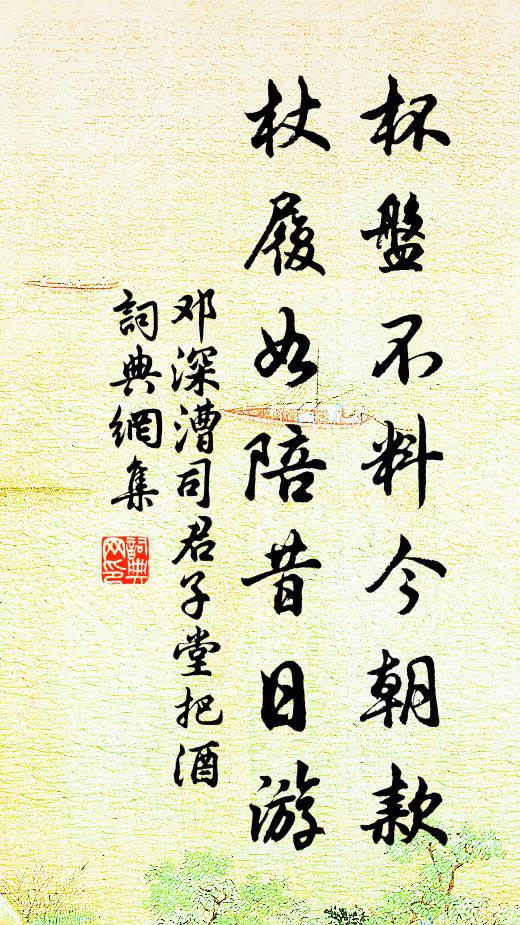 杯盤不料今朝款
杖履如陪昔日游
邓深漕司君子堂把酒
詞典網集
詞典網印